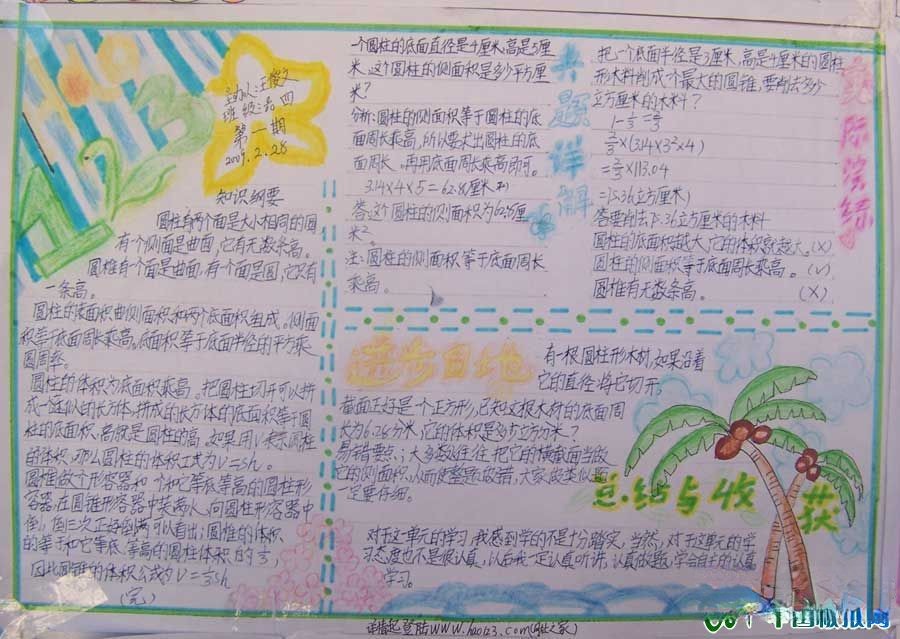 123
主办人:王俊文
班级:
四
第一期
2009.2.28
知识纲要
圆柱有两个面是大小相同的圆
有个侧面是曲面,它有无数条高。
圆锥有个面是曲面,有个面是圆,它只有
一条高。
圆柱的表面积由侧面积和两个底面积组成。侧面
积等于底面周长乘高。底面积等于底面半径的平方乘
圆周率。
圆柱的体积为底面积乘高。把圆柱切开可以拼
成一近似的长方体,拼成的长方体的底面积等于圆
柱的底面积、高就是圆柱的高。如果用V表示圆柱
的体积,那么圆柱的体积公式为V=sh。
圆锥做个形容器和个和它等底等高的圆柱形
容器,在圆锥形容器中装满水、向圆柱形容器中
倒,倒三次正好倒满可以看出:圆锥的体积
的等于和它等底、等高的圆柱体积的1/3,
因此圆锥的体积公式为V=1/3sh
(完)
一个圆柱的底面直径是4厘米,高是5厘
米,这个圆柱的侧面积是多少平方厘
米?
分析:圆柱的侧面积等于圆柱的底
面周长乘高,所以要求出圆柱的底
面周长。再用底面周长乘高即可。
3.14×4×5=62.8(厘米²)
答:这个圆柱的侧面积为62.8厘
米²。
注:圆柱的侧面积等于底面周长
乘高。
题详解
把一个底面半径是3厘米,高是4厘米的圆柱
形木料削成个最大的圆锥,要削去多少
立方厘米的木料?
1-1/3=2/3
2/3×(3.14×3²×4)
=2/3×113.04
=75.36(立方厘米)
答:要削去75.36立方厘米的木料
圆柱的底面积越大,它的体积就越大。(X)
圆柱的侧面积等于底面周长乘高。(√)
圆锥有无数条高。(X)
实际演练
进步自地
有一根圆柱形木材,如果沿着
它的直径将它切开,
截面正好是个正方形,已知这根木材的底面周
长为6.28分米,它的体积是多少立方分米?
易错要点:大多数人往往把它的横截面当做
它的侧面积,从而使整题做错,大家做类似题
一定要仔细。
总结与收获
对于这单元的学习,我感到学的不是十分踏实,当然,对于这单元的学
习态度也不是很认真,以后我一定认真听讲,认真做题,学会自主的认真
学习。
请登陆www.hao123.com(网址之家)
中国板报网